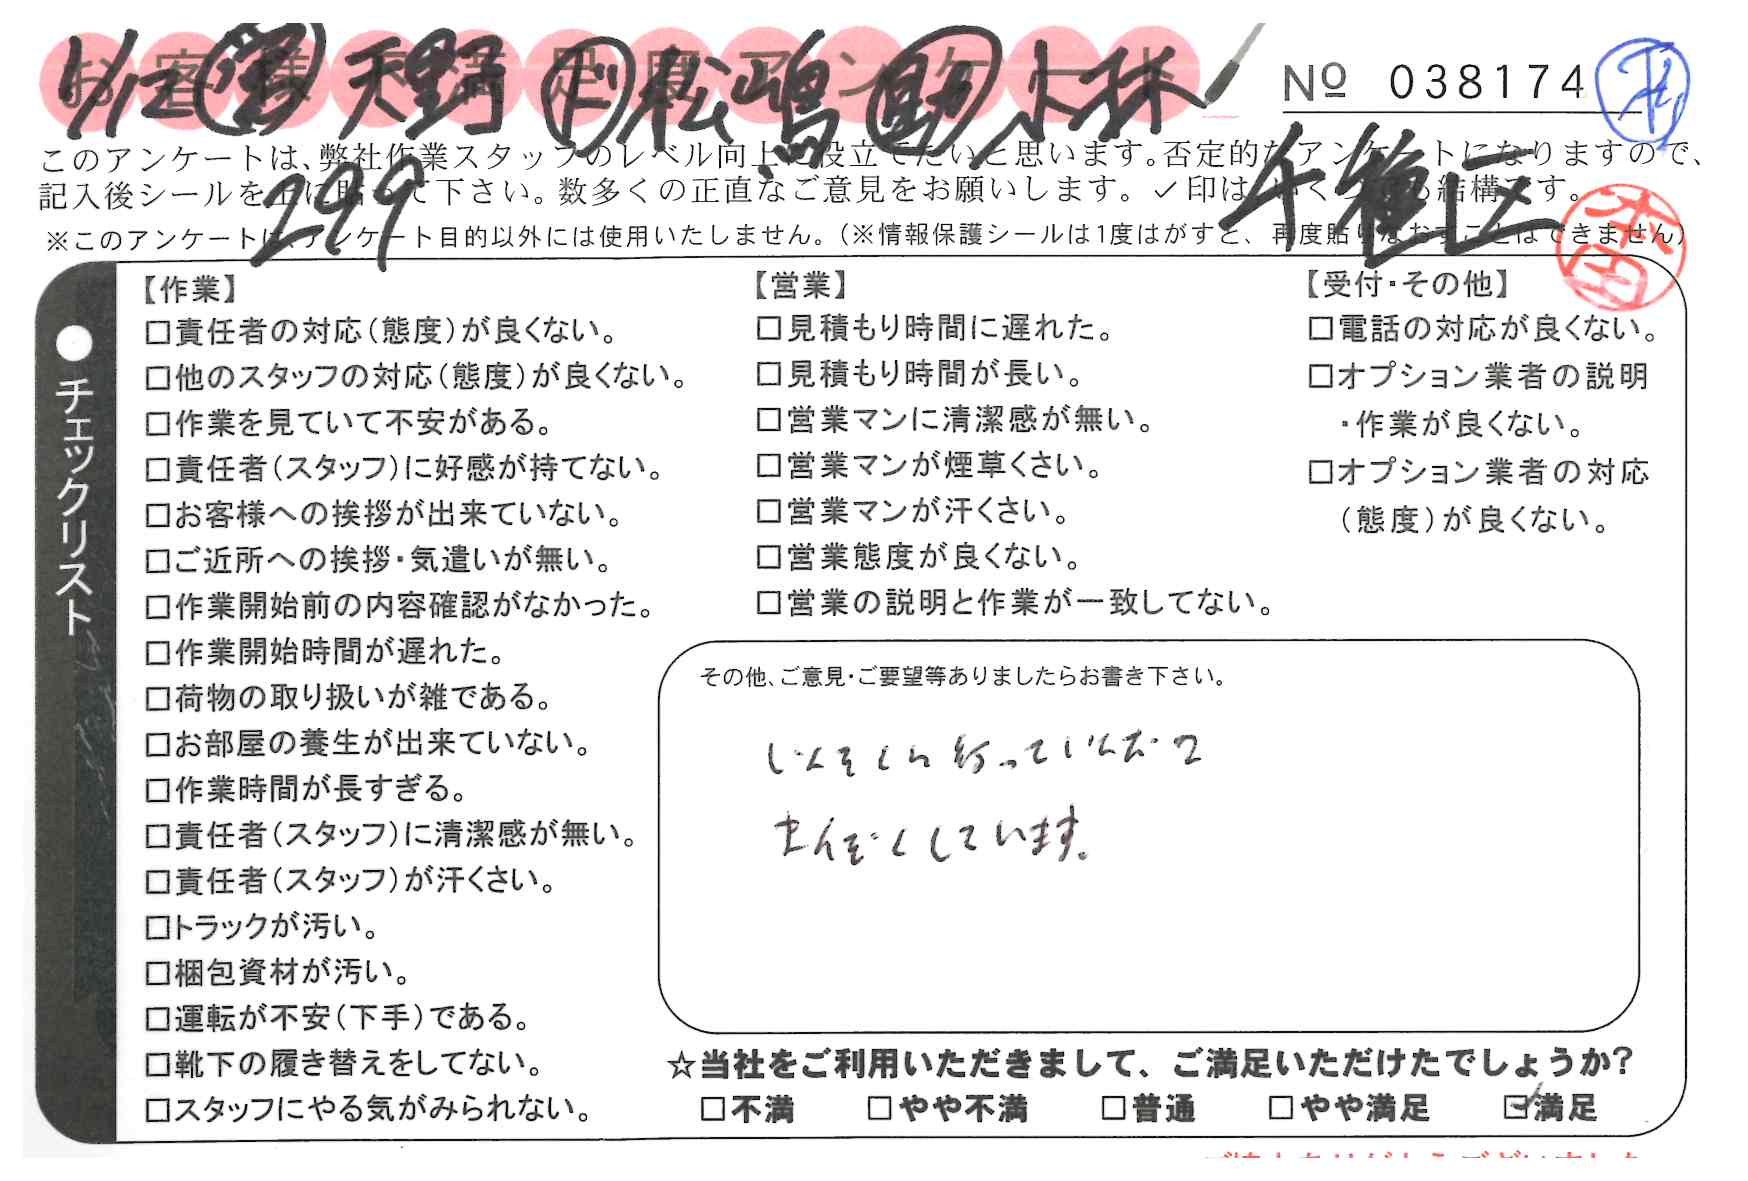 お客様の満足度アンケート
1/12 天野 ド 松嶋 助 小林
№ 038174
299 千種区
このアンケートは、弊社作業スタッフのレベル向上に役立てたいと思います。否定的なアンケートになりますので、
記入後シールを上に貼って下さい。数多くの正直なご意見をお願いします。✓印はいくつでも結構です。
※このアンケートは、アンケート目的以外には使用いたしません。(※情報保護シールは1度はがすと、再度貼りなおすことはできません)
本田
●チェックリスト
【作業】
□責任者の対応(態度)が良くない。
□他のスタッフの対応(態度)が良くない。
□作業を見ていて不安がある。
□責任者(スタッフ)に好感が持てない。
□お客様への挨拶が出来ていない。
□ご近所への挨拶・気遣いが無い。
□作業開始前の内容確認がなかった。
□作業開始時間が遅れた。
□荷物の取り扱いが雑である。
□お部屋の養生が出来ていない。
□作業時間が長すぎる。
□責任者(スタッフ)に清潔感が無い。
□責任者(スタッフ)が汗くさい。
□トラックが汚い。
□梱包資材が汚い。
□運転が不安(下手)である。
□靴下の履き替えをしてない。
□スタッフにやる気がみられない。
【営業】
□見積もり時間に遅れた。
□見積もり時間が長い。
□営業マンに清潔感が無い。
□営業マンが煙草くさい。
□営業マンが汗くさい。
□営業態度が良くない。
□営業の説明と作業が一致してない。
【受付・その他】
□電話の対応が良くない。
□オプション業者の説明
・作業が良くない。
□オプション業者の対応
(態度)が良くない。
その他、ご意見・ご要望等ありましたらお書き下さい。
じんそくに行っていただき
まんぞくしています。
☆当社をご利用いただきまして、ご満足いただけたでしょうか?
□不満 □やや不満 □普通 □やや満足 ☑満足